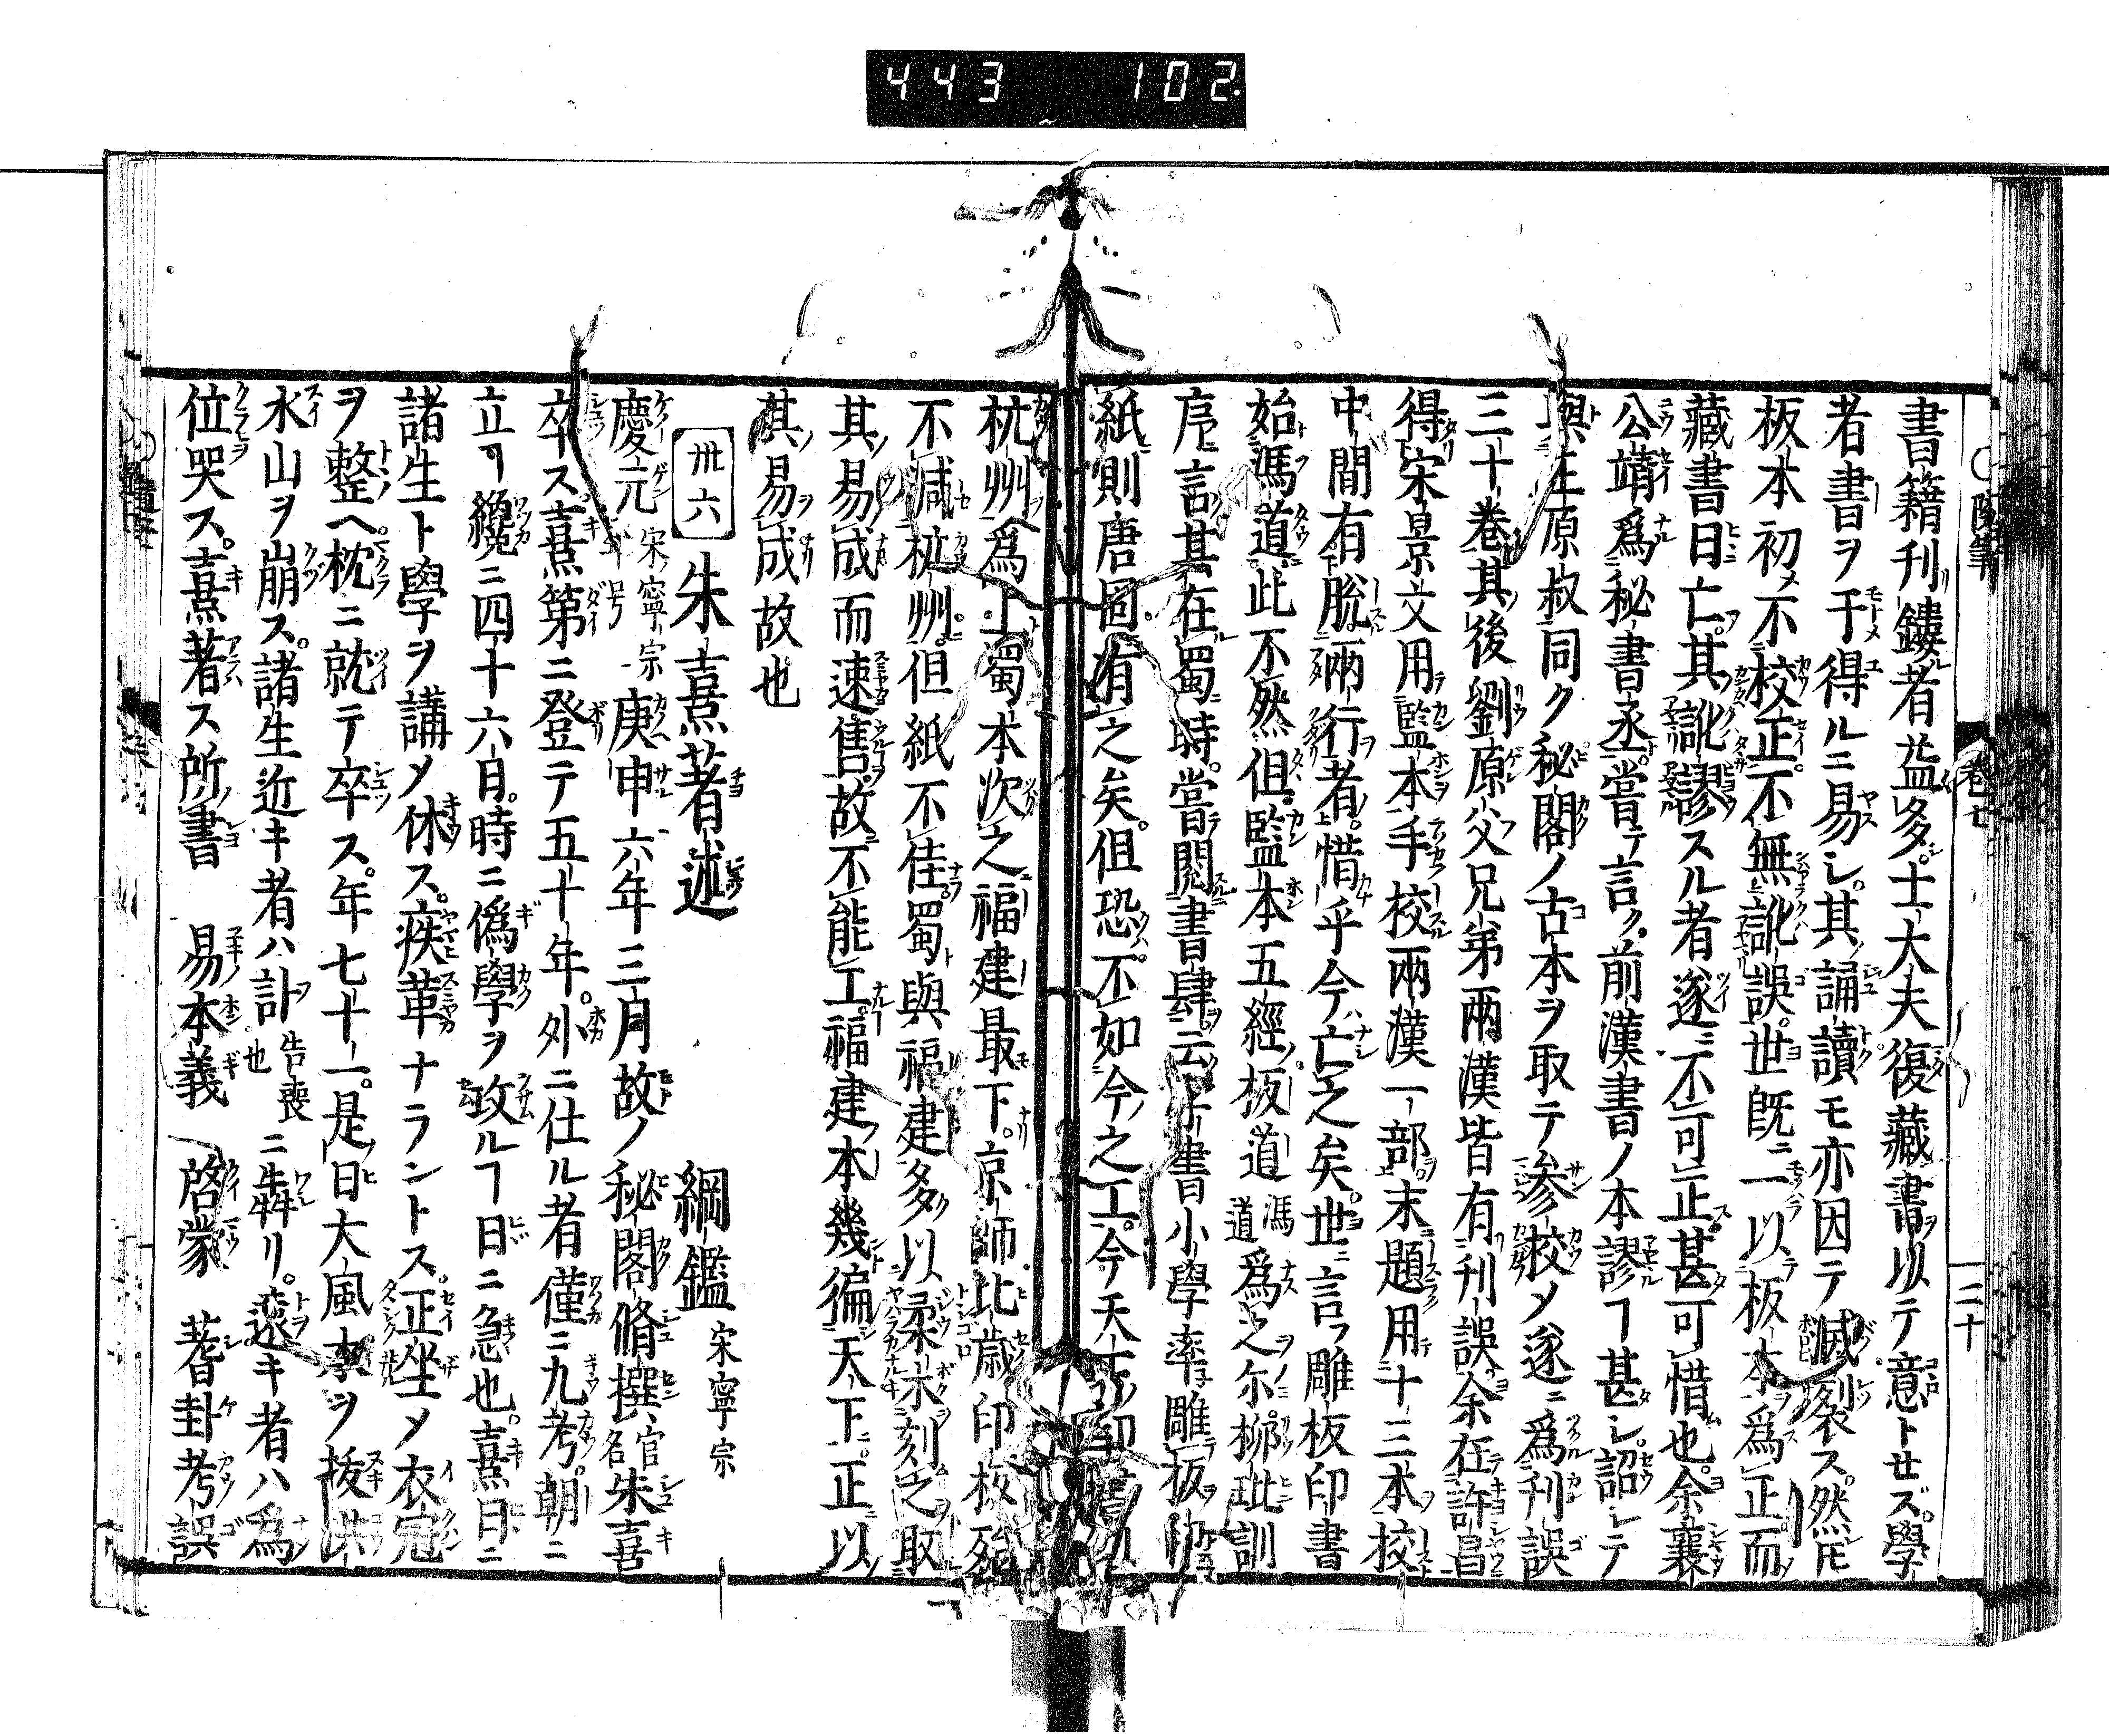 443 102.
卷七
二十
書籍刊鏤者益多士大夫復藏書ヲ以テ意トセズ學
者書ヲ于得ルニ易シ其誦讀モ亦因テ滅裂ス然𪜈
板本初メ不校正不無訛誤世既ニ一以板本爲正而
藏書日亡其訛謬スル者遂ニ不可正甚可惜也余襄
公靖爲秘書丞嘗テ言ク前漢書ノ本謬ヿ甚シ詔シテ
與王原叔同ク秘閣ノ古本ヲ取テ參校メ遂ニ爲刊誤
三十卷其後劉原父兄弟兩漢皆有刊誤余在許昌
得宋景文用監本手校兩漢一部末題用十三本校
中間有脫兩行者惜乎今亡之矣世ニ言フ雕板印書
始馮道此不然但監本五經板道馮道爲之尓柳玭訓
序言其在蜀時嘗閱書肆云字書小學率雕板印
紙則唐固有之矣但恐不如今之工今天下印書以
杭州爲上蜀本次之福建最下京師比歳印板殆
不減杭州但紙不佳蜀與福建多以柔木刻之取
其易成而速售故不能工福建本幾徧天下正以
其易成故也
卅六 朱熹著述 綱鑑 宋寧宗
慶元宋ノ寧宗年号庚申六年三月故ノ秘閣脩撰官名朱熹
卒ス熹第ニ登テ五十年外ニ仕ル者僅ニ九考朝ニ
立ヿ纔ニ四十六日時ニ僞學ヲ攻ルヿ日ニ急也熹日ニ
諸生ト學ヲ講メ休ス疾革ナラントス正坐メ衣冠
ヲ整ヘ枕ニ就テ卒ス年七十一是日大風李ヲ拔洪
水山ヲ崩ス諸生近キ者ハ訃告喪也ニ犇リ遠キ者ハ爲
位哭ス熹著ス所書 易本義 啓蒙 蓍卦考誤